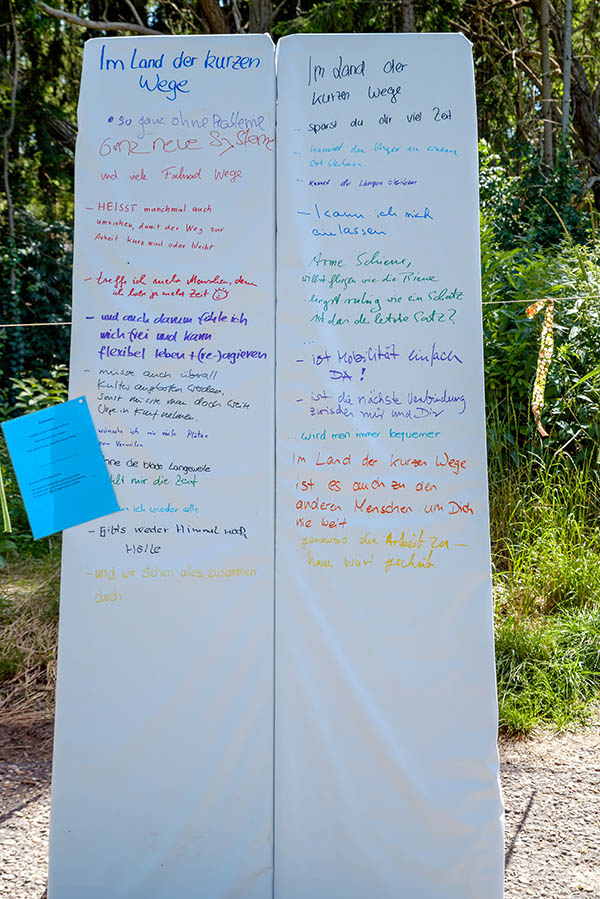 Im Land der kurzen
Wege
so ganz ohne Probleme
Ganz neue Systeme
und viele Fahrrad Wege
- HEISST manchmal auch
umziehen, damit der Weg zur
Arbeit kurz wird oder bleibt
- treffe ich mehr Menschen, denn
ich habe ja mehr Zeit
- und auch darum fühle ich
mich frei und kann
flexibel leben + (re-)agieren
- müsste auch überall
Kultur angeboten werden,
sonst müsste man doch weite
Wege in Kauf nehmen.
wünsche ich mir viele Plätze
zum Verweilen
ohne die blöde Langeweile
fehlt mir die Zeit
ich wieder alle
- Gibts weder Himmel noch
Hölle
- und wir stehen alles zusammen
durch
Im Land der
kurzen Wege
... sparst du dir viel Zeit
... kannst du länger an einem
Ort
kannst du länger bleiben
- kann ich mich
einlassen
Arme Schiene,
willst fliegen wie die Biene
liegst ruhig wie ein Schatz
Ist das der letzte Satz?
...
- ist Mobilität einfach
DA!
- ist die nächste Verbindung
zwischen mir und Dir
... wird man immer bequemer
Im Land der kurzen Wege
ist es auch zu den
anderen Menschen um Dich
nie weit
genauso der Arbeit zu -